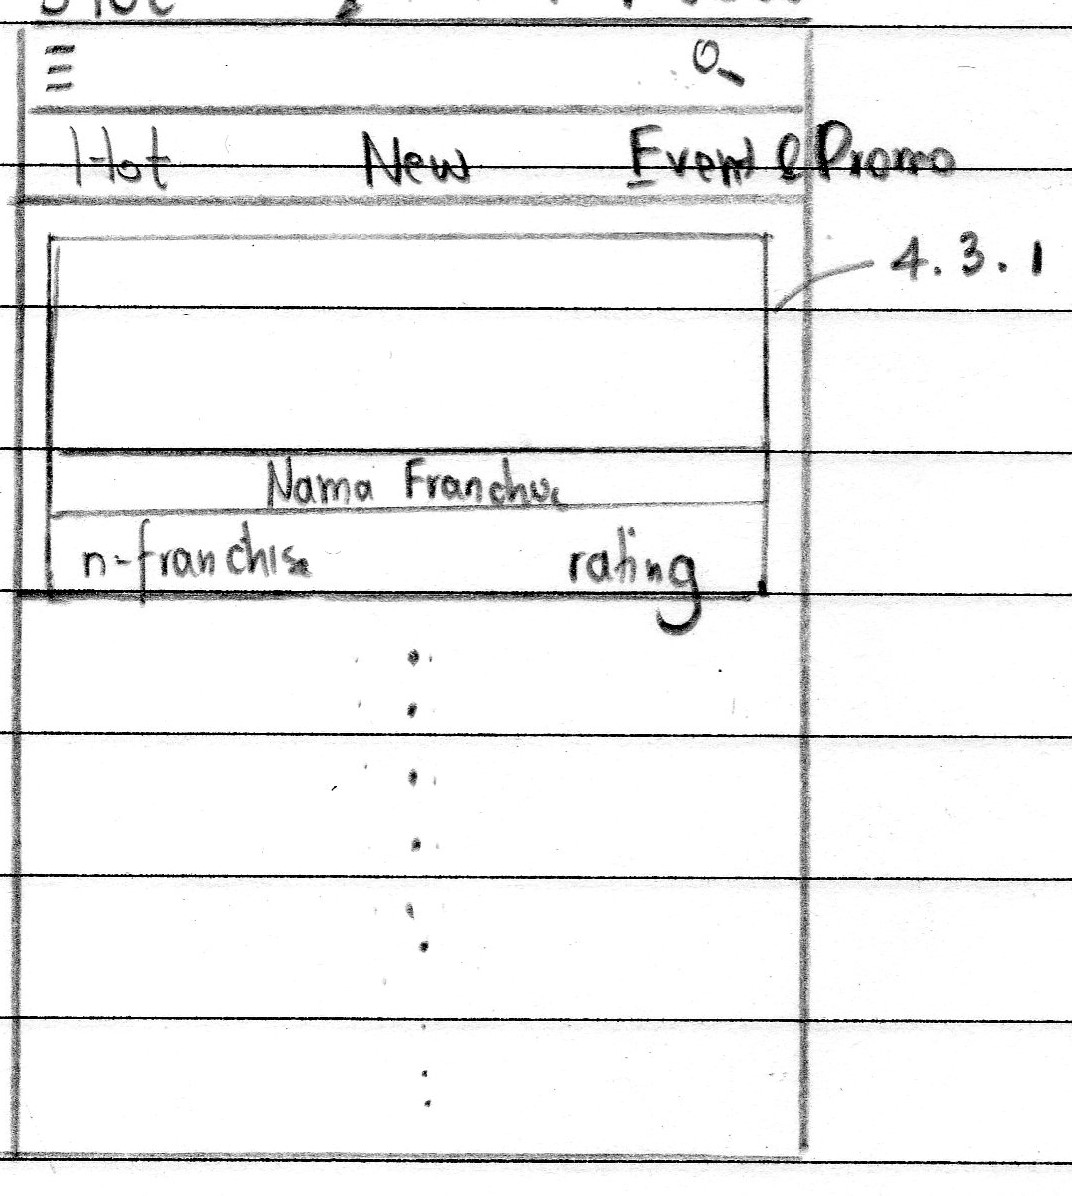 Hot New Event & Promo
4.3.1
Nama Franchise
n-franchise rating